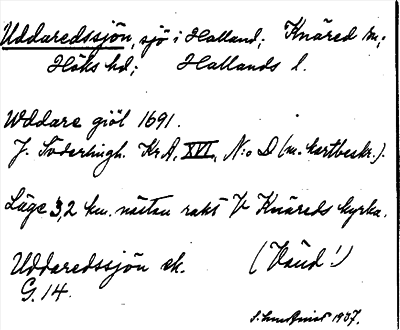 Uddaredssjön, sjö i Halland; Knäred sn;
Höks hd; Hallands l.
Uddare giöl 1691.
J. Söderlingh. Kr.A, XVI, N:o D (m. kartbeskr.).
Läge 3,2 km. nästan rakt V Knäreds kyrka.
Uddaredssjön ek. (Vänd!)
G. 14.
1937.